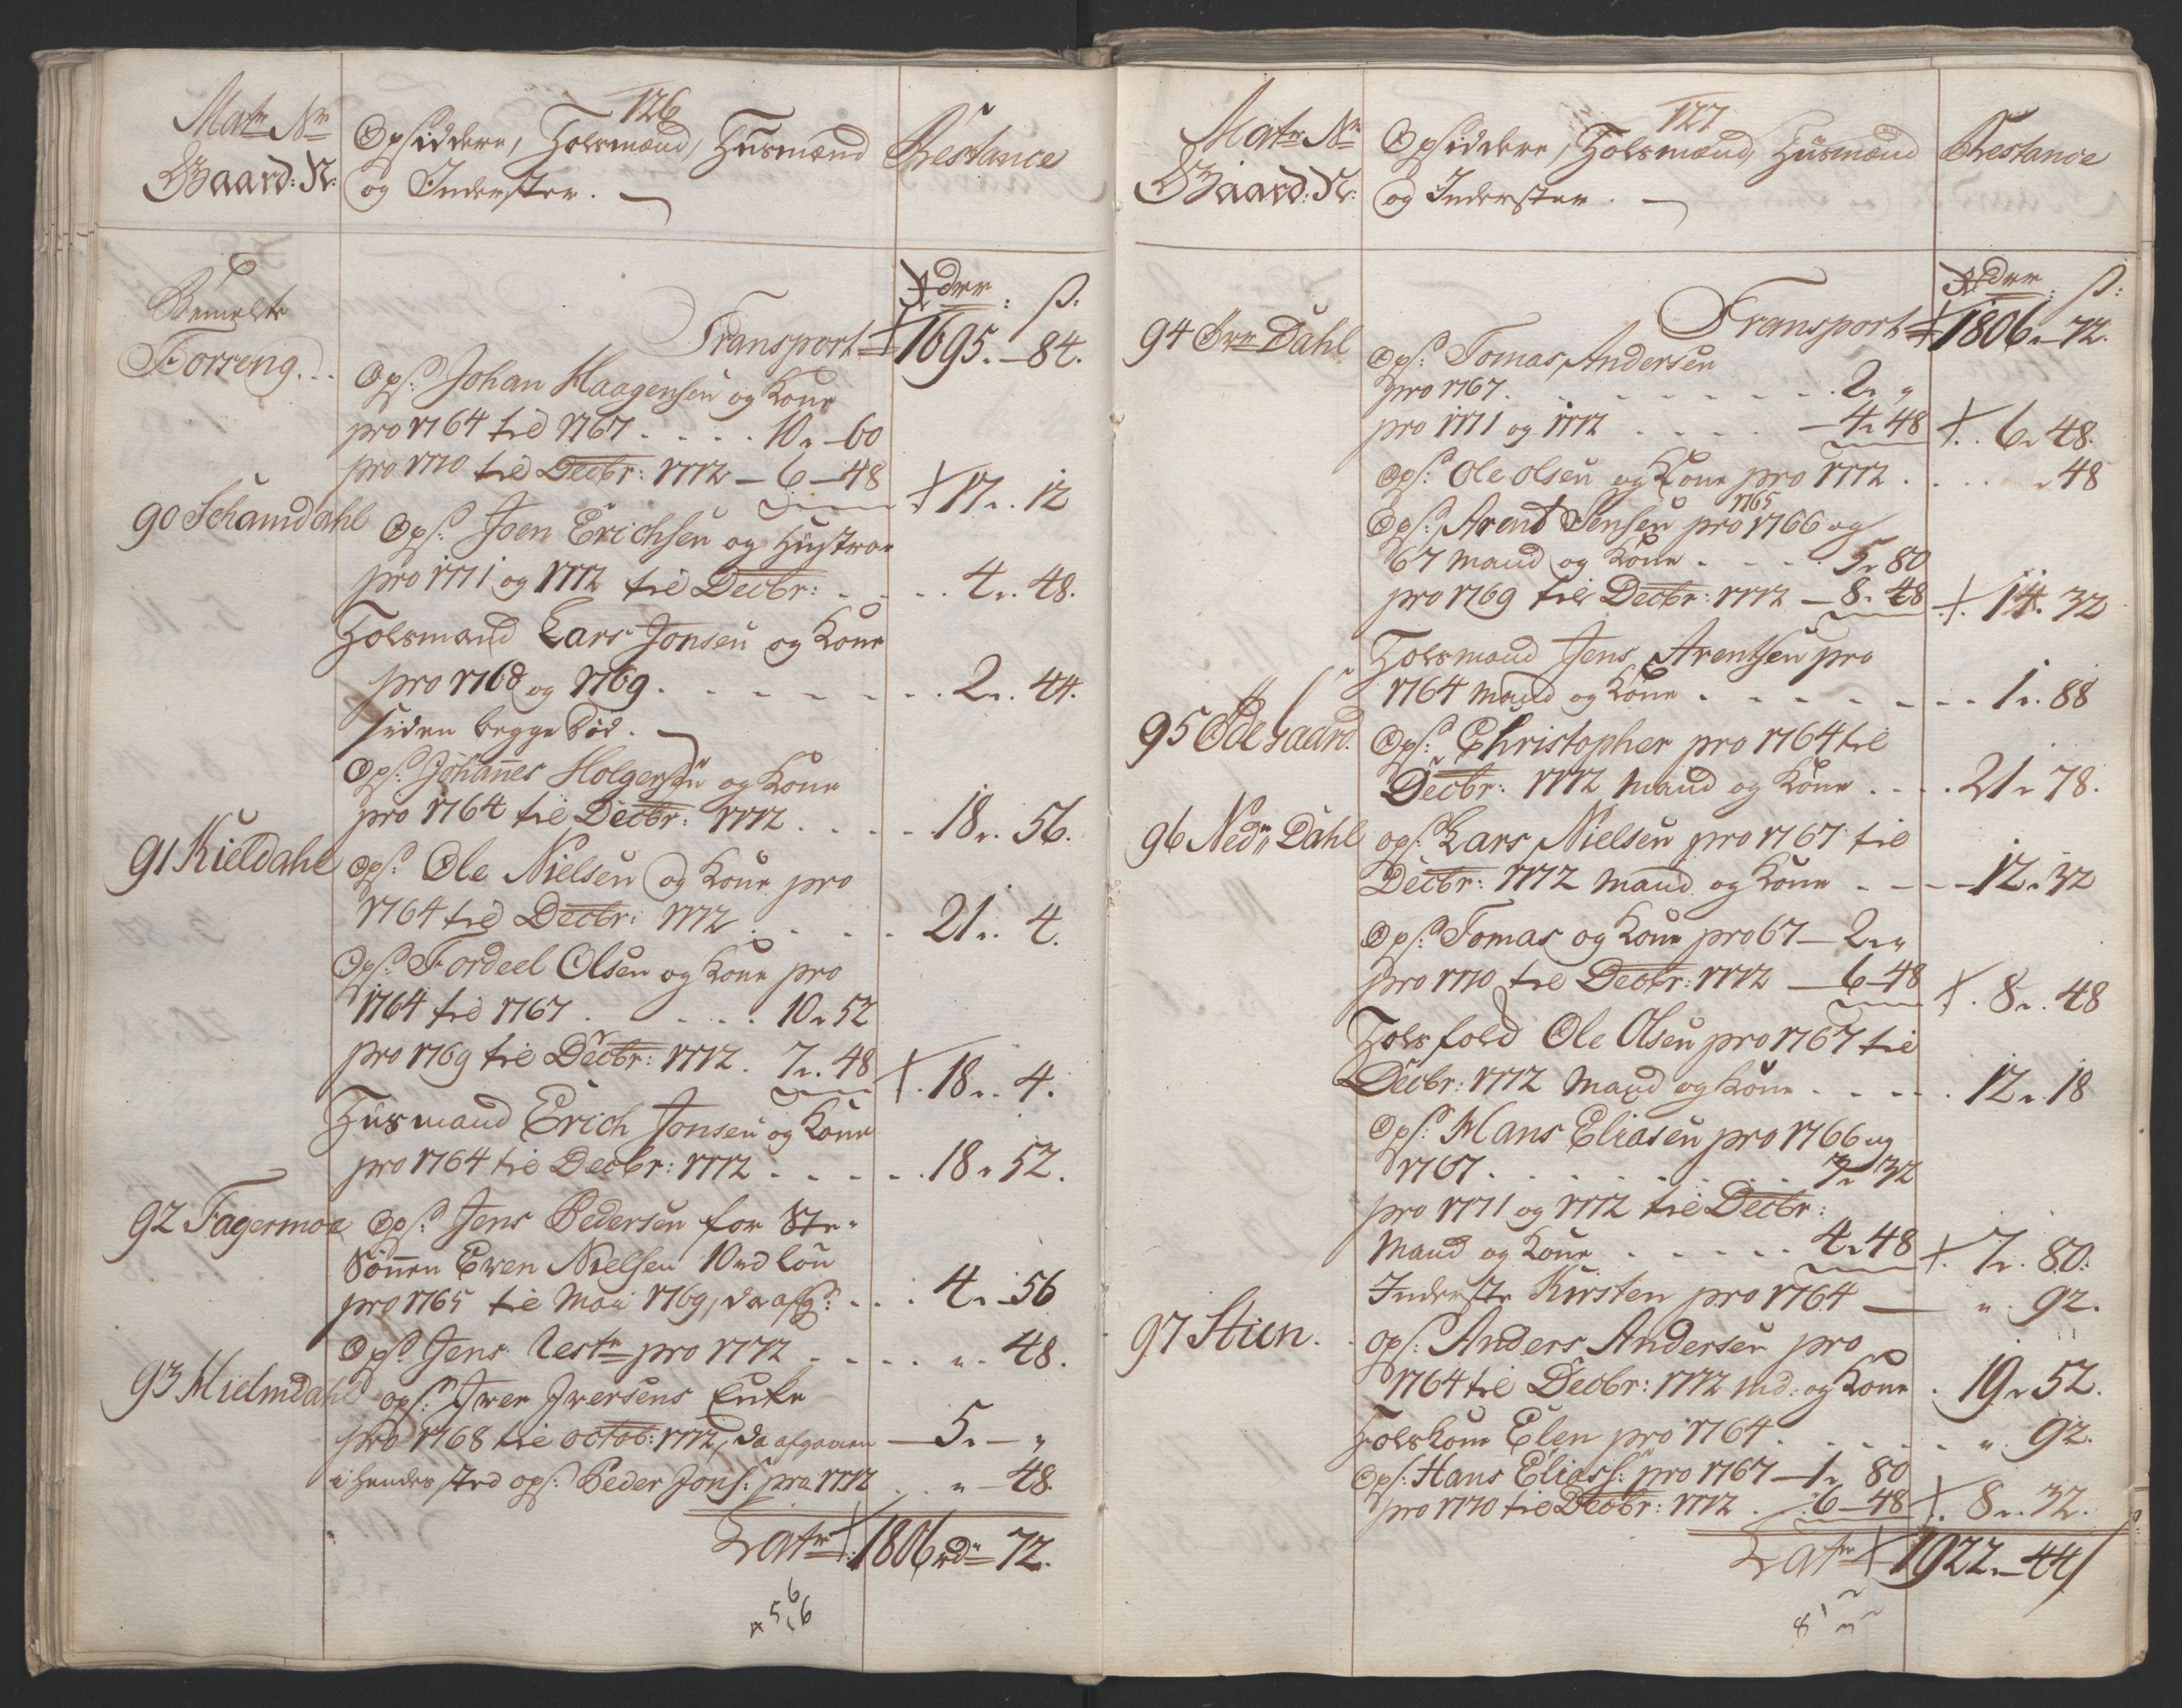 126
Matr: Nr:
Gaard: N:
Opsiddere, Folsmænd, Husmænd
og Inderster.
Restance
Rdr: ß:
Bemelte
Forreng.
Transport 1695. 84.
Ops: Johan Haagensen og Kone
pro 1764 til 1767 . . . . 10 „ 60
pro 1770 til Decbr: 1772 — 6 — 48
17 „ 12
90 Schamdahl
Ops: Joen Erichsen og Hustroe
pro 1771 og 1772 til Decbr: . . . . 4 „ 48.
Folsmand Lars Jonsen og Kone
pro 1768 og 1769 . . . . . . 2 „ 44.
siden begge Død.
Ops: Johannes Holgersen og Kone
pro 1764 til Decbr: 1772 . . . . 18 „ 56.
91 Kieldahl
Ops: Ole Nielsen og Kone pro
1764 til Decbr: 1772 . . . . 21 „ 4.
Ops: Fordeel Olsen og Kone pro
1764 til 1767 . . . . 10 „ 52
pro 1769 til Decbr: 1772 . 7 „ 48
18 „ 4.
Husmand Erich Jonsen og Kone
pro 1764 til Decbr: 1772 . . . . 18 „ 52.
92 Fagermoe
Ops: Jens Pedersen for Ste-
Sønnen Even Nielsen
pro 1765 til Maji 1769, da afg: . . . 4 „ 56
Ops: Jens pro 1772 . . . . „ 48.
93 Hielmdahl
ops: Iver Iversens Enke
pro 1768 til octob: 1772, da afgaaen — 5 „ — „
i hendes sted ops: Peder Jons: pro 1772 . . „ — 48.
Latr: 1806 rdr 72.
127
Matr: Nr:
Gaard: N:
Opsiddere, Folsmænd, Husmænd
og Inderster.
Restance
Rdr: ß:
Transport 1806 „ 72.
94 Øvr Dahl
Ops: Tomas Andersen
pro 1767 . . . . . . . 2 „ „
pro 1771 og 1772 . . . . — 4 „ 48
6 „ 48.
Ops: Ole Olsen og Kone pro 1772 . . . „ 48
1765
Ops: Arent Jensen pro 1766 og
67 Mand og Kone . . . . 5 „ 80
pro 1769 til Decbr: 1772 — 8 „ 48
14. 32
Folsmand Jens Arentsen pro
1764 Mand og Kone . . . . . . . 1 „ 88
95 Ødegaard.
Ops: Christopher pro 1764 til
Decbr: 1772 Mand og Kone . . . . 21 „ 78.
96 Nedr: Dahl
ops: Lars Nielsen pro 1767 til
Decbr: 1772 Mand og Kone . — — — 12 „ 32
Ops: Tomas og Kone pro 67 — 2 „ „
pro 1770 til Decbr: 1772 — 6 — 48
8 „ 48
Folsfold Ole Olsen pro 1767 til
Decbr: 1772 Mand og Kone . . . . . 12 „ 18
Ops: Hans Eliasen pro 1766 og
1767 . . . . . . . 3 „ 32
pro 1771 og 1772 til Decbr:
Mand og Kone . . . . . 4 „ 48
7 „ 80.
Inderste Kirsten pro 1764 — „ 92.
97 Stien.
ops: Anders Andersen pro
1764 til Decbr: 1772 Md: og Kone . 19 „ 52.
Folskone Elen pro 1764 . . . . . . „ 92.
Ops: Hans Elias: pro 1767 — 1 „ 80
pro 1770 til Decbr: 1772 . 6 — 48
8 „ 32.
Latr: 1922 „ 44